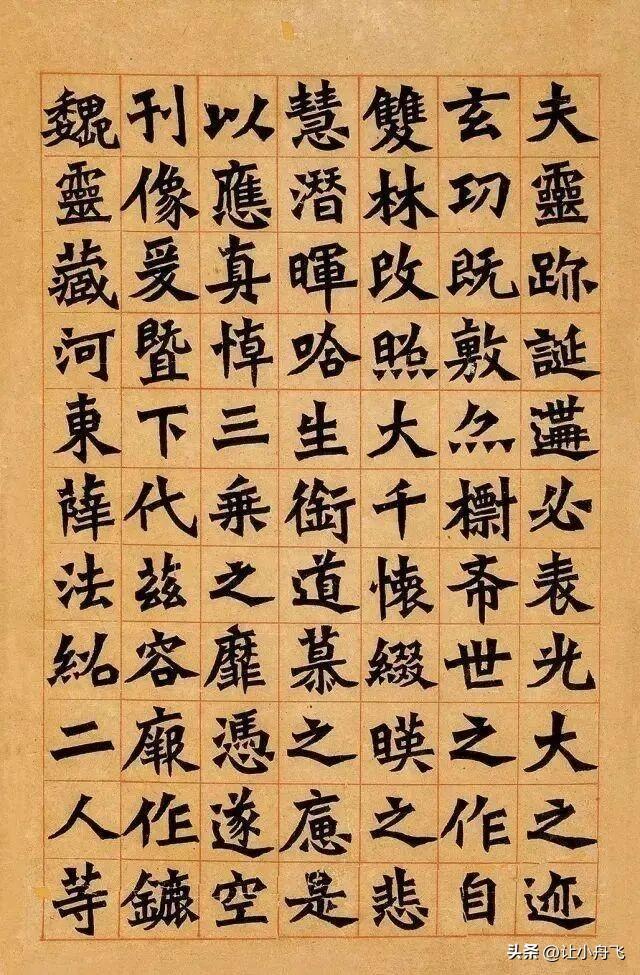 夫靈跡誕遘必表光大之迹
玄功既敷亦標希世之作自
雙林改照大千懷綴暎之悲
慧潛暉唅生銜道慕之應是
以應真悼三乘之靡憑遂空
刊像爰暨下代茲容廄作鑣
魏靈藏河東薛法紹二人等
头条 @让小舟飞